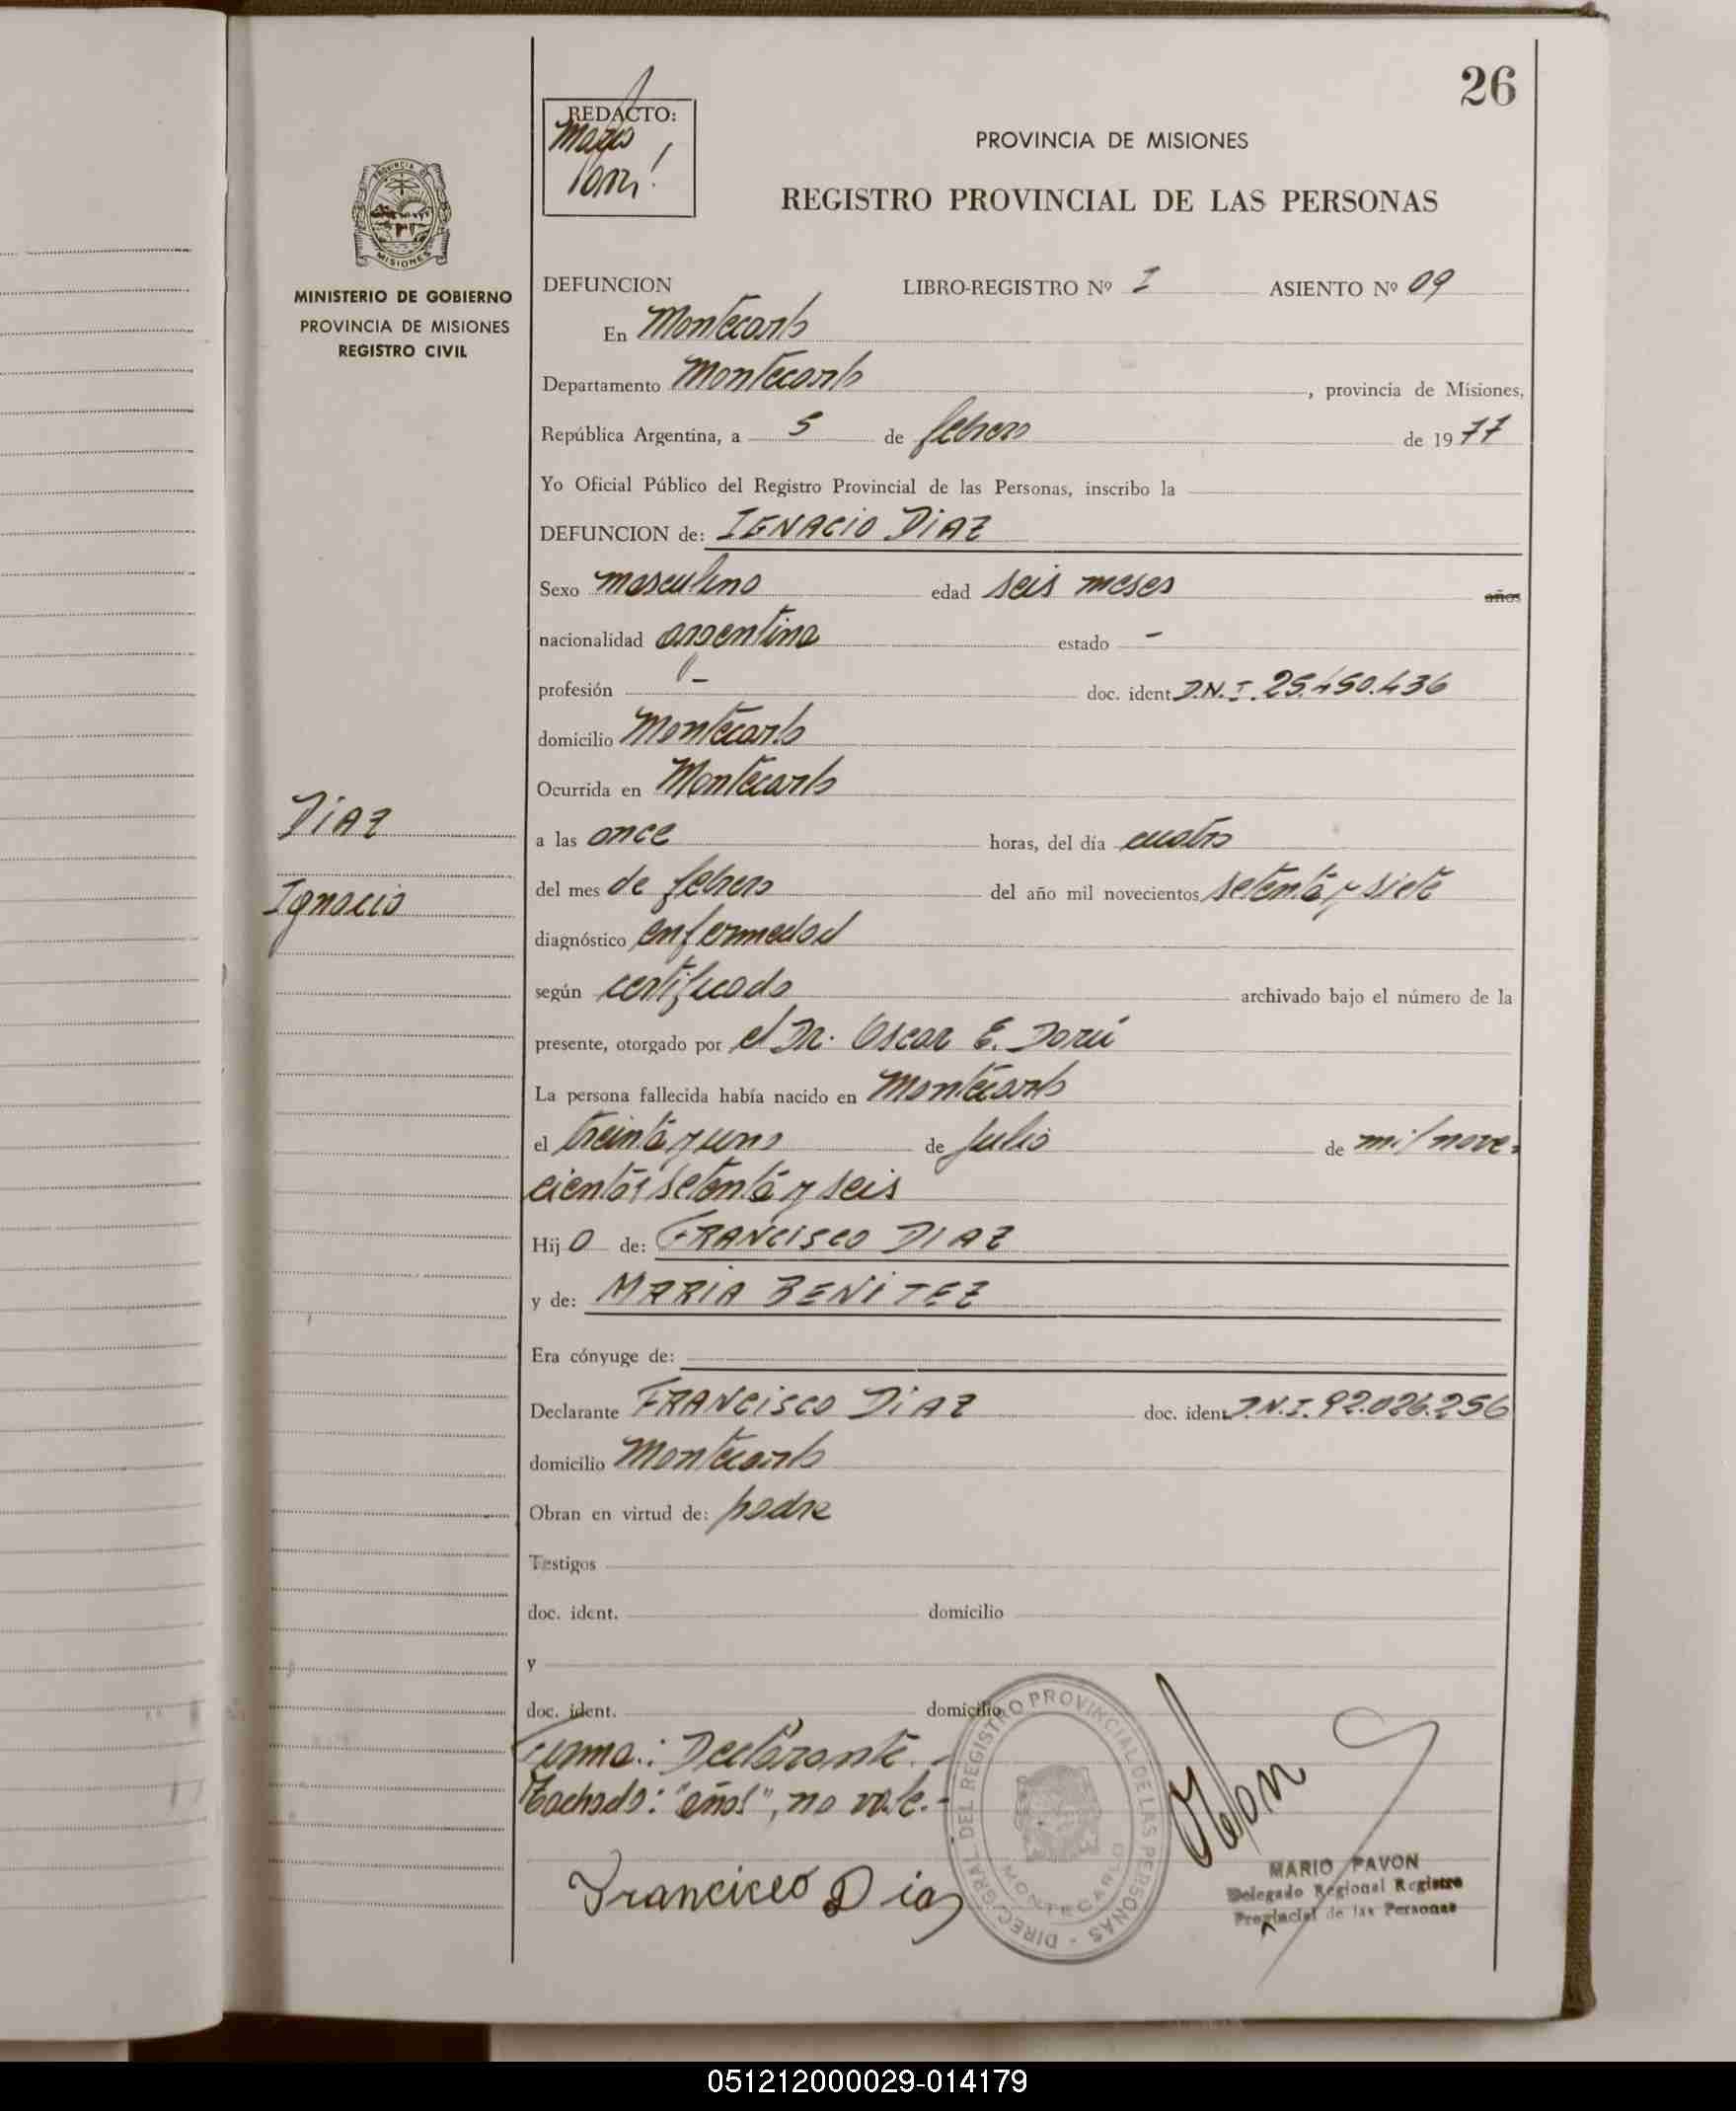 26
REDACTO:
PROVINCIA DE MISIONES
REGISTRO PROVINCIAL DE LAS PERSONAS
PROVINCIA DE
MISIONES
MINISTERIO DE GOBIERNO
PROVINCIA DE MISIONES
REGISTRO CIVIL
DEFUNCION LIBRO-REGISTRO Nº I ASIENTO Nº 09
En Montecarlo
Departamento Montecarlo, provincia de Misiones,
República Argentina, a 5 de febrero de 1977
Yo Oficial Público del Registro Provincial de las Personas, inscribo la
DEFUNCION de: IGNACIO DIAZ
Sexo masculino edad seis meses años
nacionalidad argentina estado -
profesión - doc. ident. D.N.I. 25.450.436
domicilio Montecarlo
Ocurrida en Montecarlo
DIAZ
a las once horas, del día cuatro
Ignacio
del mes de febrero del año mil novecientos setenta y siete
diagnóstico enfermedad
según certificado archivado bajo el número de la
presente, otorgado por el Dr. Oscar E.
La persona fallecida había nacido en Montecarlo
el treinta y uno de julio de mil nove-
cientos setenta y seis
Hijo de: FRANCISCO DIAZ
y de: MARIA BENITEZ
Era cónyuge de:
Declarante FRANCISCO DIAZ doc. ident. D.N.I. 92.026.256
domicilio Montecarlo
Obran en virtud de: padre
Testigos
doc. ident. domicilio
y
doc. ident. domicilio
Firma: Declarante.-
Tachado: "años", no vale.-
Francisco Diaz
DIREC. GRAL. DEL REGISTRO PROVINCIAL DE LAS PERSONAS -
MONTECARLO
MARIO PAVON
Delegado Regional Registro
Provincial de las Personas
051212000029-014179